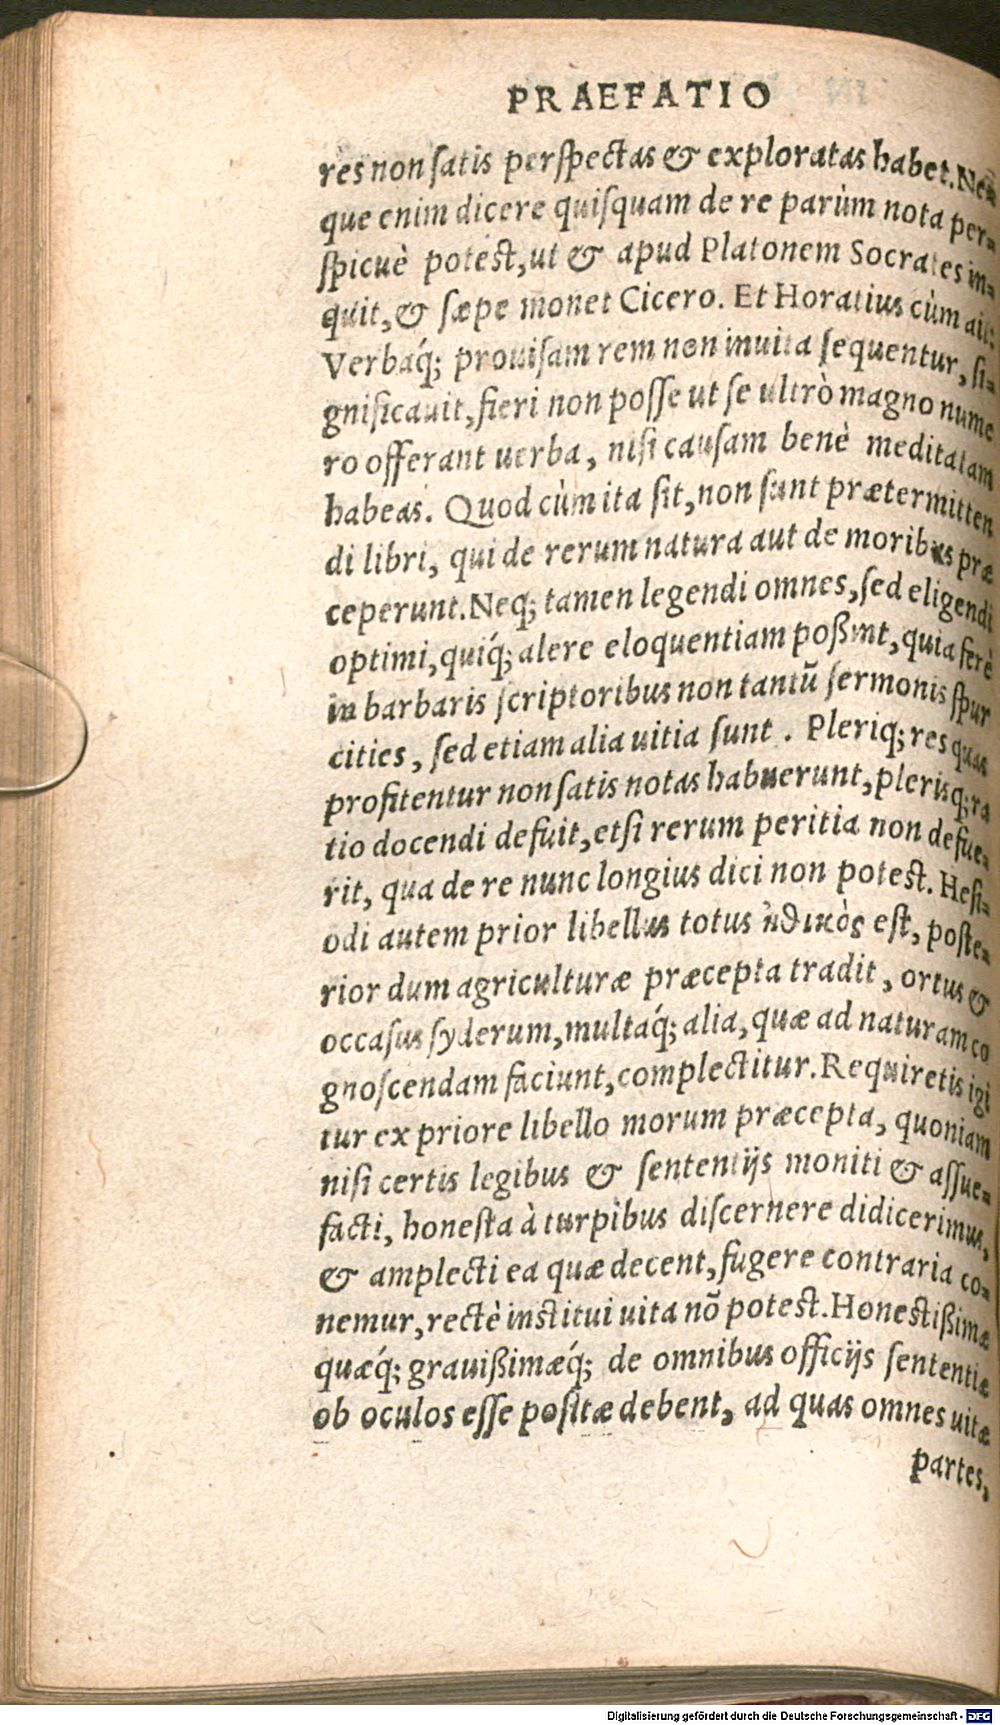 PRAEFATIO
res non ſatis perſpectas & exploratas habet. Ne-
que enim dicere quiſquam de re parùm nota per-
ſpicuè poteſt, ut & apud Platonem Socrates in-
quit, & ſæpe monet Cicero. Et Horatius cùm ait:
Verbaq́; prouiſam rem non inuita ſequentur, ſi-
gnificauit, fieri non poſſe ut ſe ultrò magno nume
ro offerant uerba, niſi cauſam benè meditatam
habeas. Quod cùm ita ſit, non ſunt prætermitten
di libri, qui de rerum natura aut de moribus præ
ceperunt. Neq; tamen legendi omnes, ſed eligendi
optimi, quiq́; alere eloquentiam poßint, quia ferè
in barbaris ſcriptoribus non tantũ ſermonis ſpur
cities, ſed etiam alia uitia ſunt. Pleriq; res quas
profitentur non ſatis notas habuerunt, pleriſq; ra
tio docendi defuit, etſi rerum peritia non defue-
rit, qua de re nunc longius dici non poteſt. Heſi-
odi autem prior libellus totus ἠθικὸς eſt, poſte-
rior dum agriculturæ præcepta tradit, ortus &
occaſus ſyderum, multaq́; alia, quæ ad naturam co
gnoſcendam faciunt, complectitur. Requiretis igi
tur ex priore libello morum præcepta, quoniam
niſi certis legibus & ſententijs moniti & aſſue-
facti, honeſta à turpibus diſcernere didicerimus,
& amplecti ea quæ decent, fugere contraria co-
nemur, rectè inſtitui uita nõ poteſt. Honeſtißimæ
quæq́; grauißimæq́; de omnibus officijs ſententiæ
ob oculos eſſe poſitæ debent, ad quas omnes uitæ
partes,
Digitalisierung gefördert durch die Deutsche Forschungsgemeinschaft - DFG